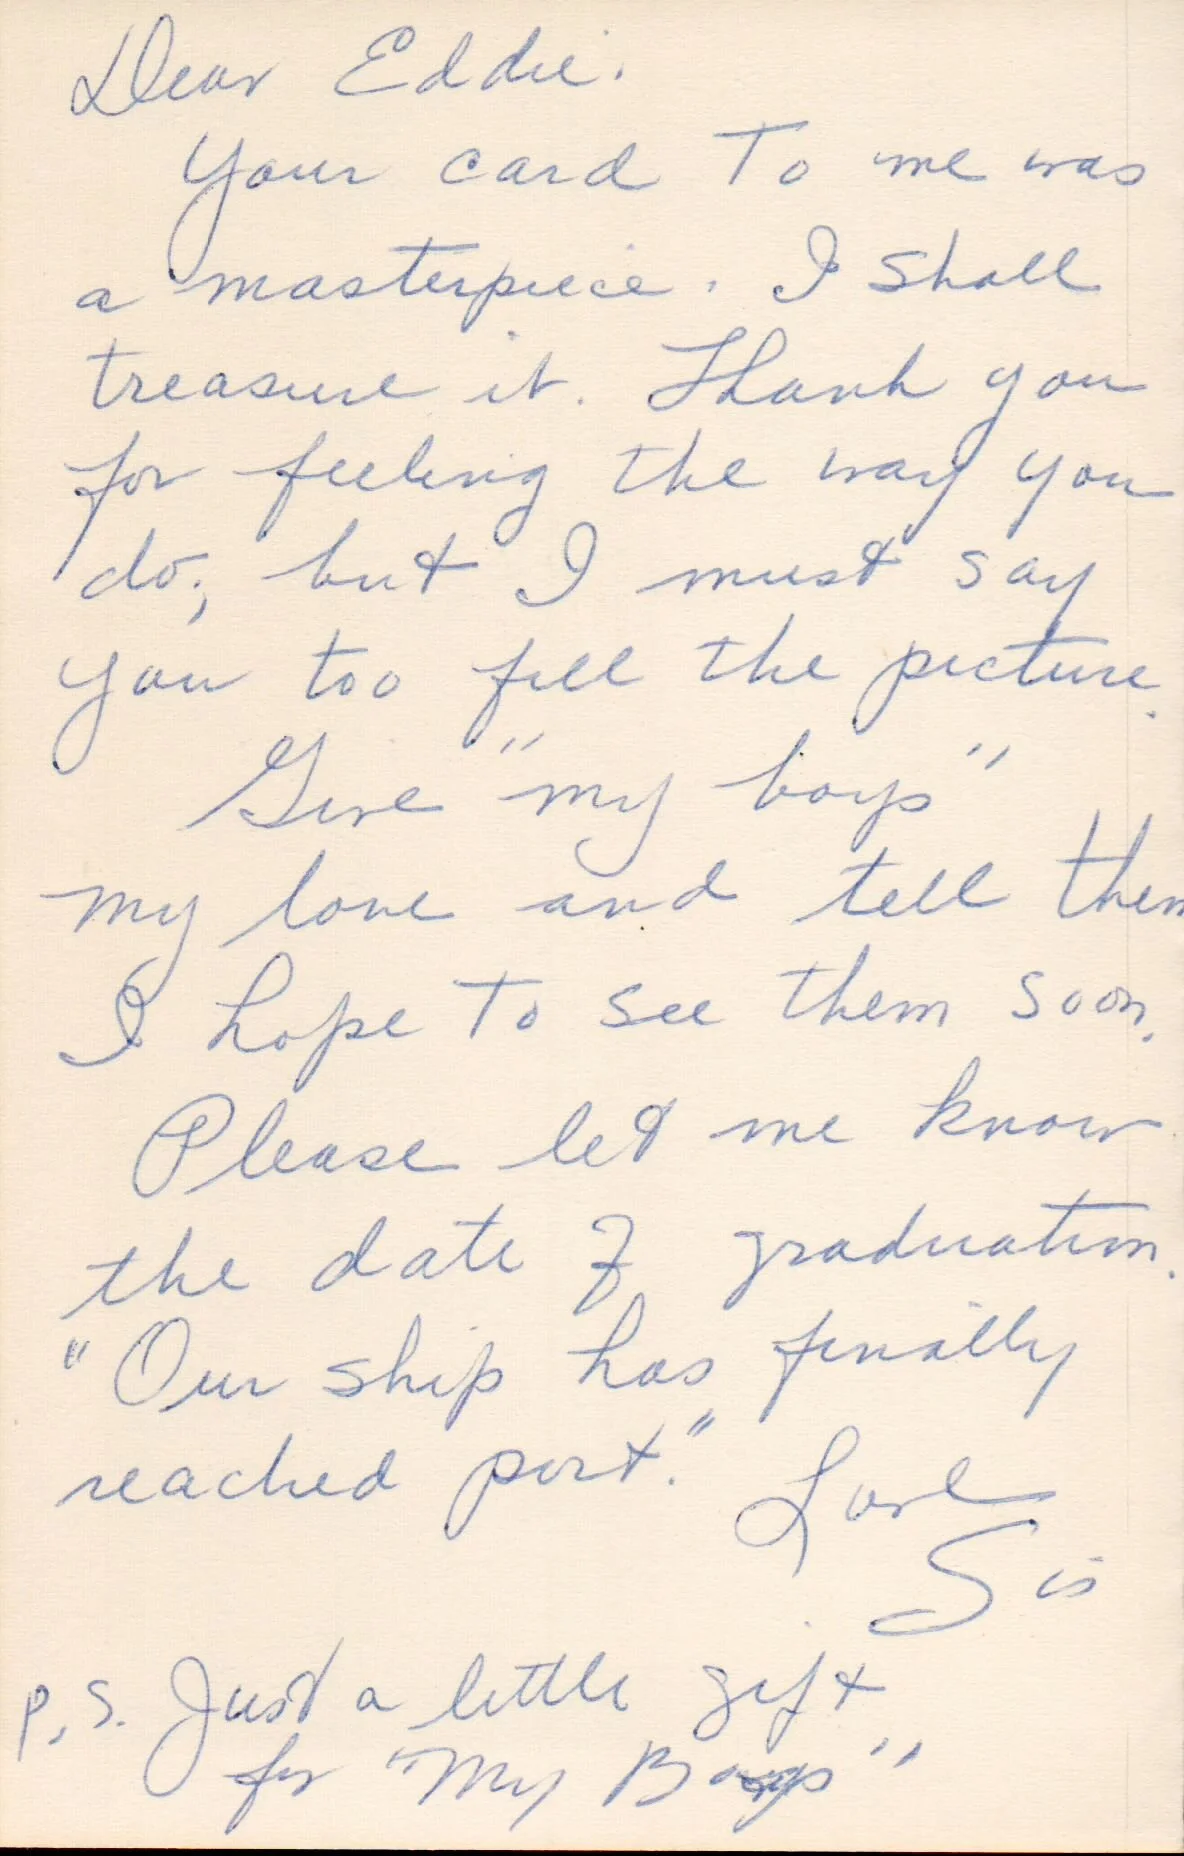 Dear Eddie.
Your card to me was
a masterpiece. I shall
treasure it. Thank you
for feeling the way you
do; but I must say
you too fill the picture.
Give "my boys"
my love and tell them
I hope to see them soon.
Please let me know
the date of graduation.
"Our ship has finally
reached port." Love
Sis
P.S. Just a little gift
for "My Boys"